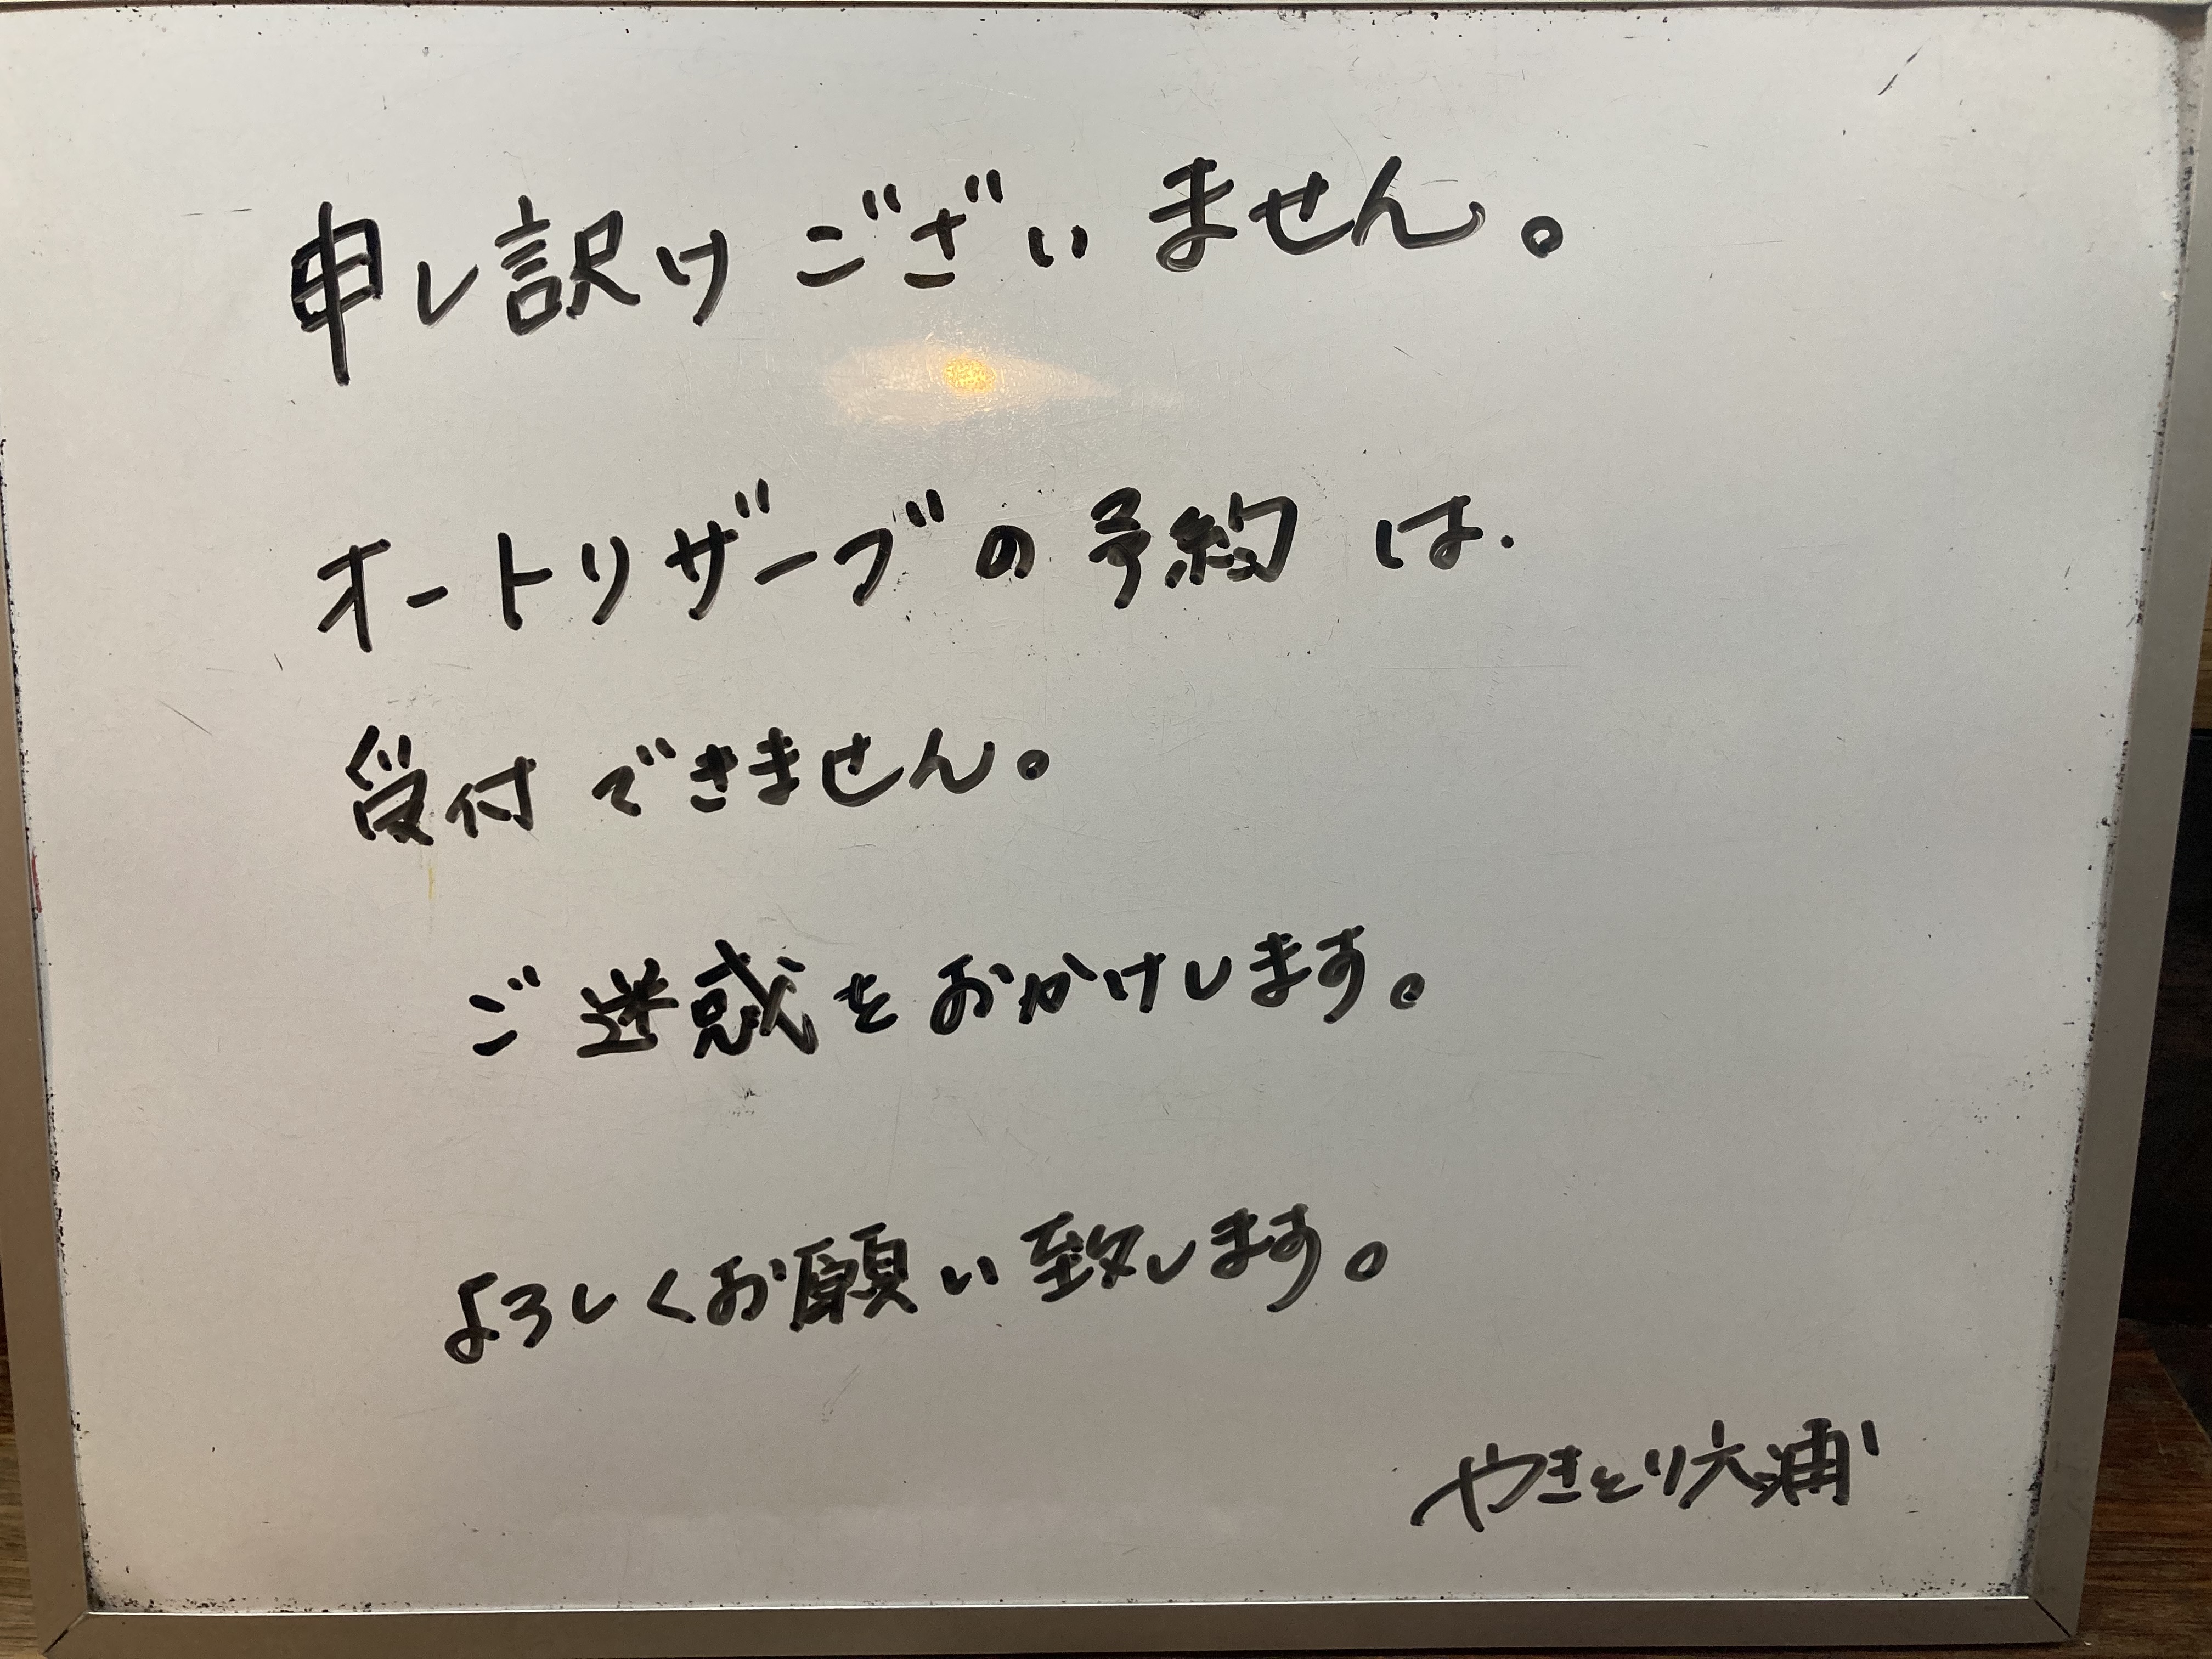 申し訳けございません。
オートリザーブの予約は.
受付できません。
ご迷惑をおかけします。
よろしくお願い致します。
やきとり六浦